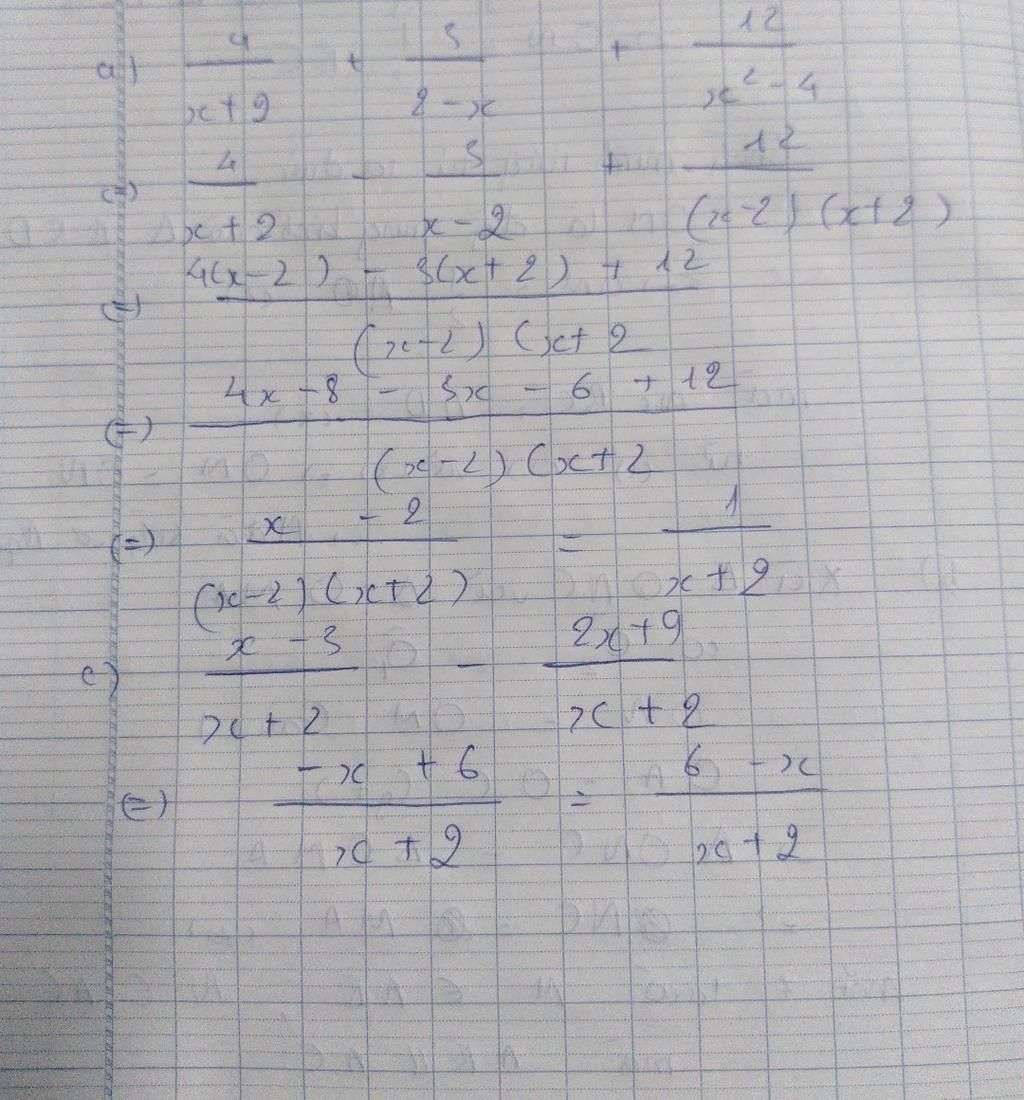 a) 4/(x+2) + 3/(2-x) + 12/(x² - 4)
(=) 4/(x+2) - 3/(x-2) + 12/((x-2)(x+2))
(=) (4(x-2) - 3(x+2) + 12)/((x-2)(x+2)
(=) (4x-8 - 3x - 6 + 12)/((x-2)(x+2)
(=) (x - 2)/((x-2)(x+2)) = 1/(x+2)
c) (x-3)/(x+2) - (2x+9)/(x+2)
(=) (-x + 6)/(x+2) = (6-x)/(x+2)